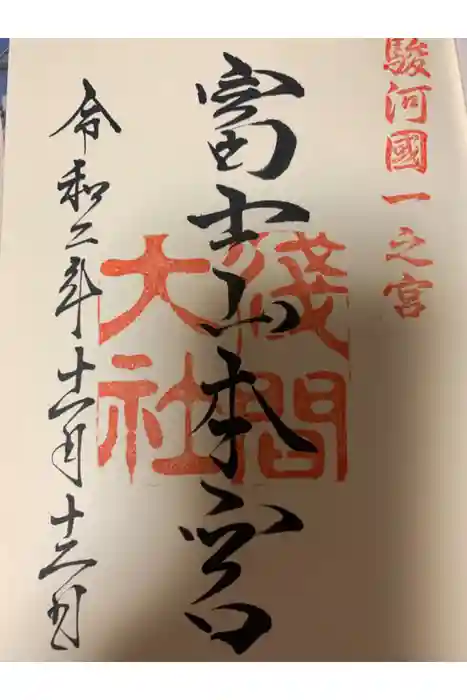 駿河國一之宮
富士山本宮
淺間
大社
令和二年十一月十六日